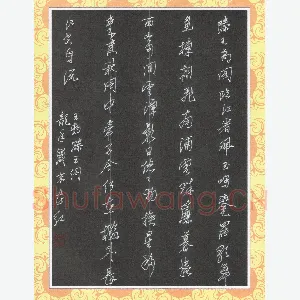 滕王高阁临江渚佩玉鸣鸾罢歌舞
画栋朝飞南浦云珠帘暮卷
西山雨闲云潭影日悠悠物换星移
几度秋阁中帝子今何在槛外长
江空自流
王勃滕王阁
shufawang.cn